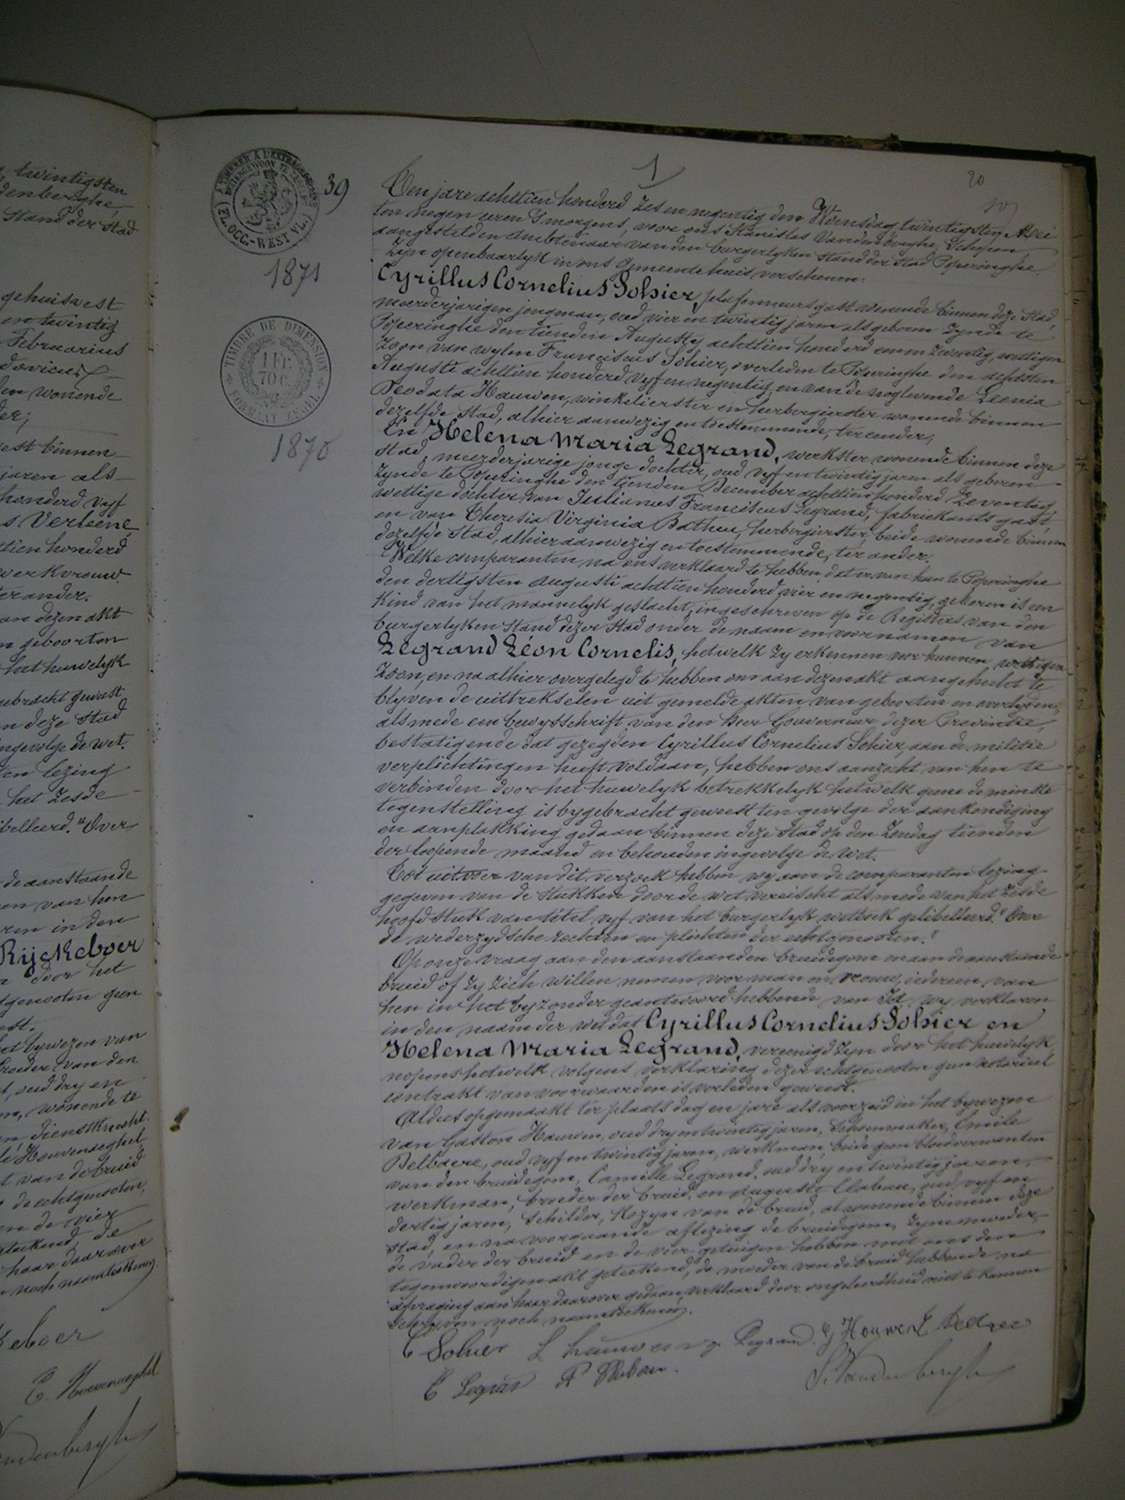 twintigsten
denberghe
Stand der Stad
gehuisvest
en twintig
Februarius
den wonende
der;
binnen
jaren als
honderd vyf
s Verleene
tien honderd
werkvrouw
er ander.
dezen akt
geboorten
het huwelyk
gebracht geweest
deze Stad
ingevolge de wet.
lezing
het Zesde
libelleerd. "Over
de aanstaande
van hen
in den
Rijckeboer
door het
echtgenooten geen
het bywezen van
broeder van den
oud dry en
wonende te
dienstknecht
Hovenaeghel
van de bruid
de echtgenooten,
de vier
geteekend de
haar daarover
noch naamteekenen
eboer
C. Hovenaeghel
Vandenberghe
TIMBRE A L'EXTRAORDINAIRE
(FL. OCC.- WEST VL.)
39
1871
TIMBRE DE DIMENSION
1 FR.
70 C.
1870
1
20
Ten jare achttien honderd Zes en negentig den Woensdag twintigsten Mei
ten negen uren 's morgens, voor ons Stanislas Vandenberghe, Schepen
aangestelden Ambtenaar van den burgerlyken Stand der Stad Poperinghe
Zyn openbaarlyk in ons Gemeentehuis verschenen:
Cyrillus Cornelius Sohier, plafonneursgast wonende binnen deze Stad,
meerderjarigen jongman, oud vier en twintig jaren als geboren Zynde te
Poperinghe den tienden Augusty achttien honderd een en Zeventig, wettigen
Zoon van wylen Franciscus Sohier, overleden te Poperinghe den achtsten
Augusti achttien honderd vyf en negentig en van de nog levende Leonia
Deodata Hauwen, winkelierster en herbergierster wonende binnen
dezelfde Stad, alhier aanwezig en toestemmende, ter eender;
En Helena Maria Legrand, werkster wonende binnen deze
Stad, meerderjarige jonge dochter, oud vyf en twintig jaren als geboren
Zynde te Poperinghe den tienden December achttien honderd Zeventig,
wettige dochter van Julianus Franciscus Legrand, fabriekantsgast,
en van Theresia Virginia Batheu, herbergierster, beide wonende binnen
dezelfde Stad, alhier aanwezig en toestemmende, ter ander.
Welke comparanten na ons verklaard te hebben, dat er van hun te Poperinghe
den dertigsten Augusti achttien honderd vier en negentig, geboren is een
Kind van het mannelyk geslacht, ingeschreven op de Registers van den
burgerlyken Stand dezer Stad onder de naam en voornamen van
Legrand Leon Cornelis, hetwelk zy erkennen voor hunnen wettigen
Zoon, en na alhier overgelegd te hebben om aan dezen akt aangehecht te
blyven de uittrekselen uit gemelde akten van geboorten en overlyden,
alsmede een bewysschrift van den Heer Gouverneur dezer Provincie,
bestatigende dat gezegden Cyrillus Cornelius Sohier, aan de militie
verplichtingen heeft voldaan, hebben ons aanzocht van hen te
verbinden door het huwelyk betrekkelyk hetwelk geene de minste
tegenstelling is bygebracht geweest ten gevolge der aankondiging
en aanplakking gedaan binnen deze Stad op den Zondag tienden
der loopende maand en behouden ingevolge de wet.
Tot uitvoer van dit verzoek hebben wy aan de comparanten lezing
gegeven van de Stukken door de wet vereischt alsmede van het Zesde
hoofdstuk van titel vyf van het burgerlyk wetboek gelibelleerd "Over
de wederzydsche rechten en plichten der echtgenooten."
Op onze vraag aan den aanstaanden bruidegom en aan de aanstaande
bruid of Zy Zich willen nemen voor man en vrouw, iedereen van
hen in het byzonder geantwoord hebbende van Ja, wy verklaren
in den naam der wet dat Cyrillus Cornelius Sohier en
Helena Maria Legrand, vereenigd Zyn door het huwelyk
nopens hetwelk volgens verklaring dezer echtgenooten geen notarieel
contrakt van voorwaarden is verleden geweest.
Aldus opgemaakt ter plaats dag en jare als voorzeid in het bywezen
van Gaston Hauwen, oud dry en twintig jaren, Schoenmaker, Emile
Delbaere, oud vyf en twintig jaren, werkman, beide geen bloedverwanten
van den bruidegom, Camille Legrand, oud dry en twintig jaren,
werkman, broeder der bruid, en Auguste Clabau, oud vyf en
dertig jaren, Schilder, Kozyn van de bruid, al wonende binnen deze
Stad, en na voorgaande aflezing de bruidegom, Zyne moeder,
de vader der bruid en de vier getuigen hebben met ons den
tegenwoordigen akt geteekend, de moeder van de bruid hebbende na
afvraging aan haar daarover gedaan, verklaard door ongeleerdheid niet te kunnen
schryven noch naamteekenen.
C Sohier L hauwen J Legrand. G Houwen E Delbaere
C Legran A Clabau. S. Vandenberghe